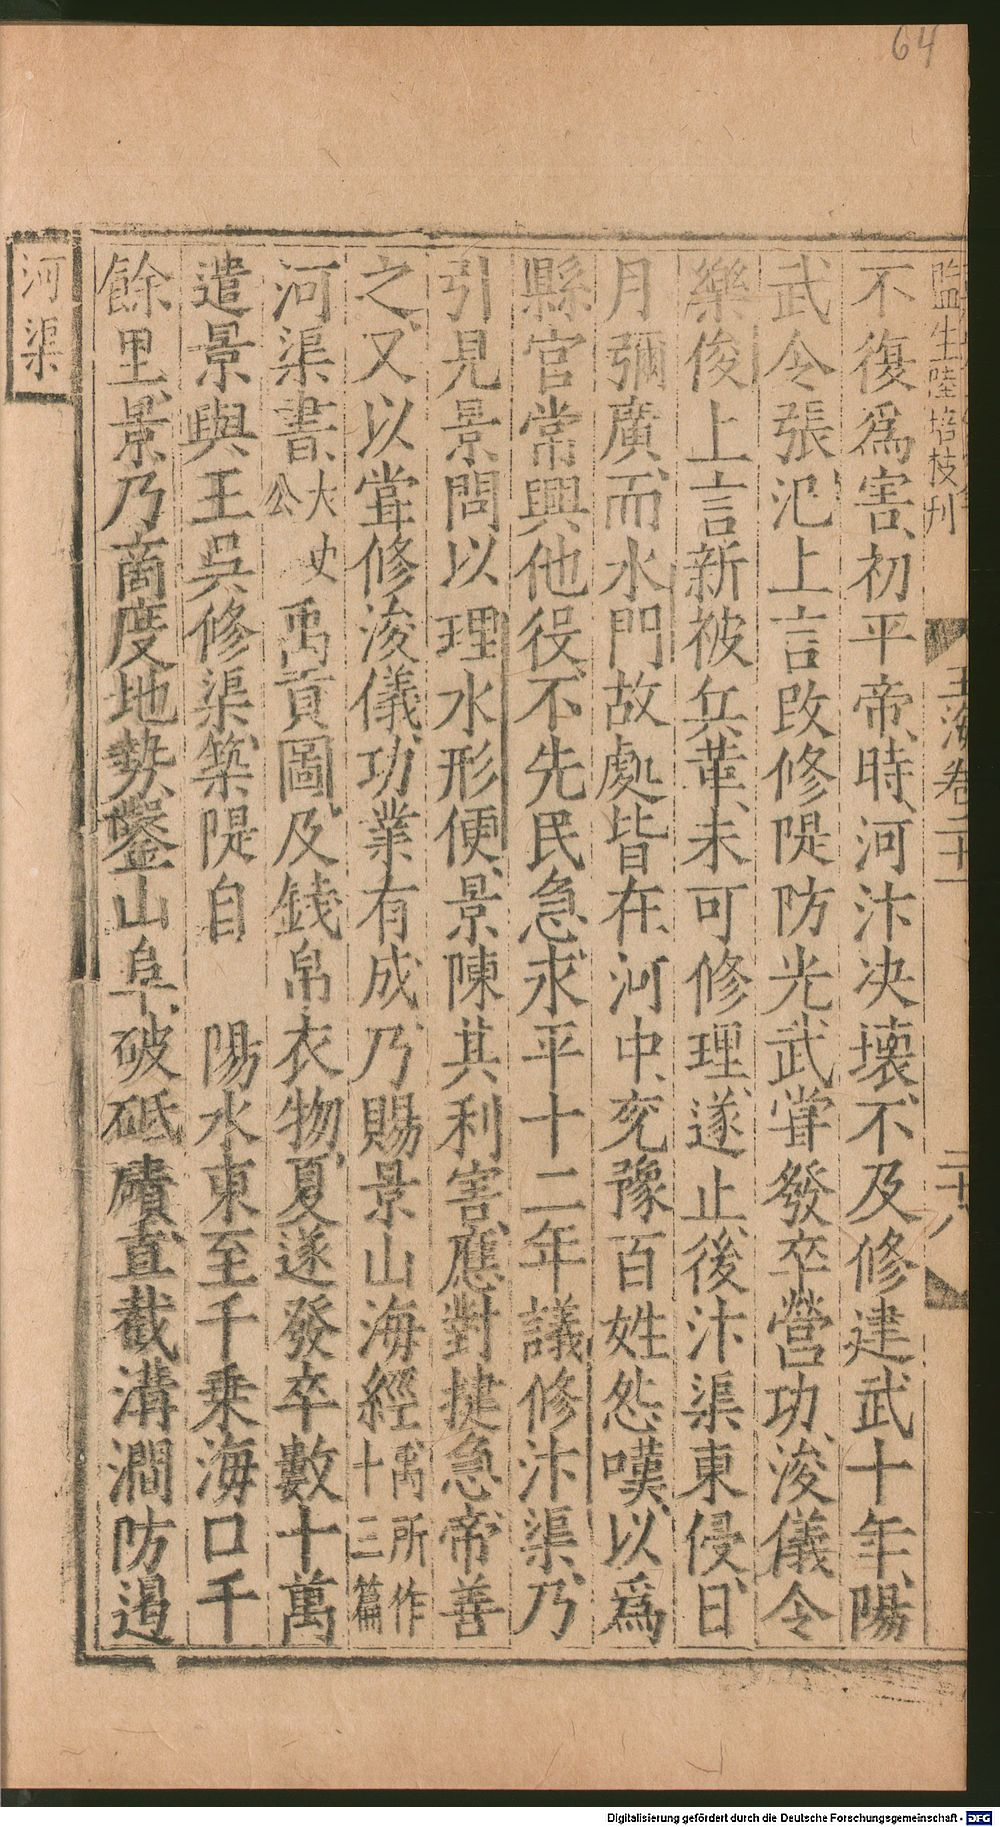 64
監生陸培枝刊
玉海卷二十一
二十八
不復爲害初平帝時河汴决壞不及修建武十年陽
武令張汜上言改修隄防光武甞發卒營功浚儀令
樂俊上言新被兵革未可修理遂止後汴渠東侵日
月彌廣而水門故處皆在河中兖豫百姓怨嘆以爲
縣官常興他役不先民急永平十二年議修汴渠乃
引見景問以理水形便景陳其利害應對捷急帝善
之又以甞修浚儀功業有成乃賜景山海經禹所作十三篇
河渠書大史公禹貢圖及錢帛衣物夏遂發卒數十萬
遣景與王吳修渠築隄自 陽水東至千乗海口千
餘里景乃商度地勢鑿山阜破砥磧直截溝澗防遏
河渠
Digitalisierung gefördert durch die Deutsche Forschungsgemeinschaft - DFG